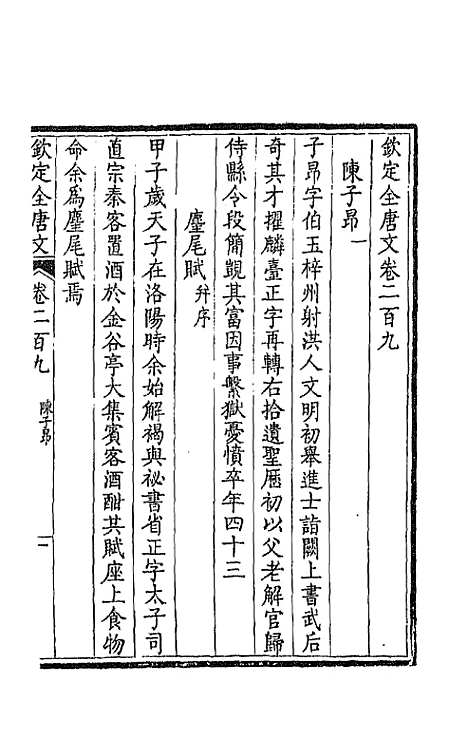 欽定全唐文卷二百九
陳子昂一
子昂字伯玉梓州射洪人文明初舉進士詣闕上書武后
奇其才擢麟臺正字再轉右拾遺聖厯初以父老解官歸
侍縣令段簡覬其富因事繫獄憂憤卒年四十三
麈尾賦并序
甲子歲天子在洛陽時余始解褐與祕書省正字太子司
直宗秦客置酒於金谷亭大集賓客酒酣共賦座上食物
命余爲麈尾賦焉
欽定全唐文 卷二百九 陳子昂 一